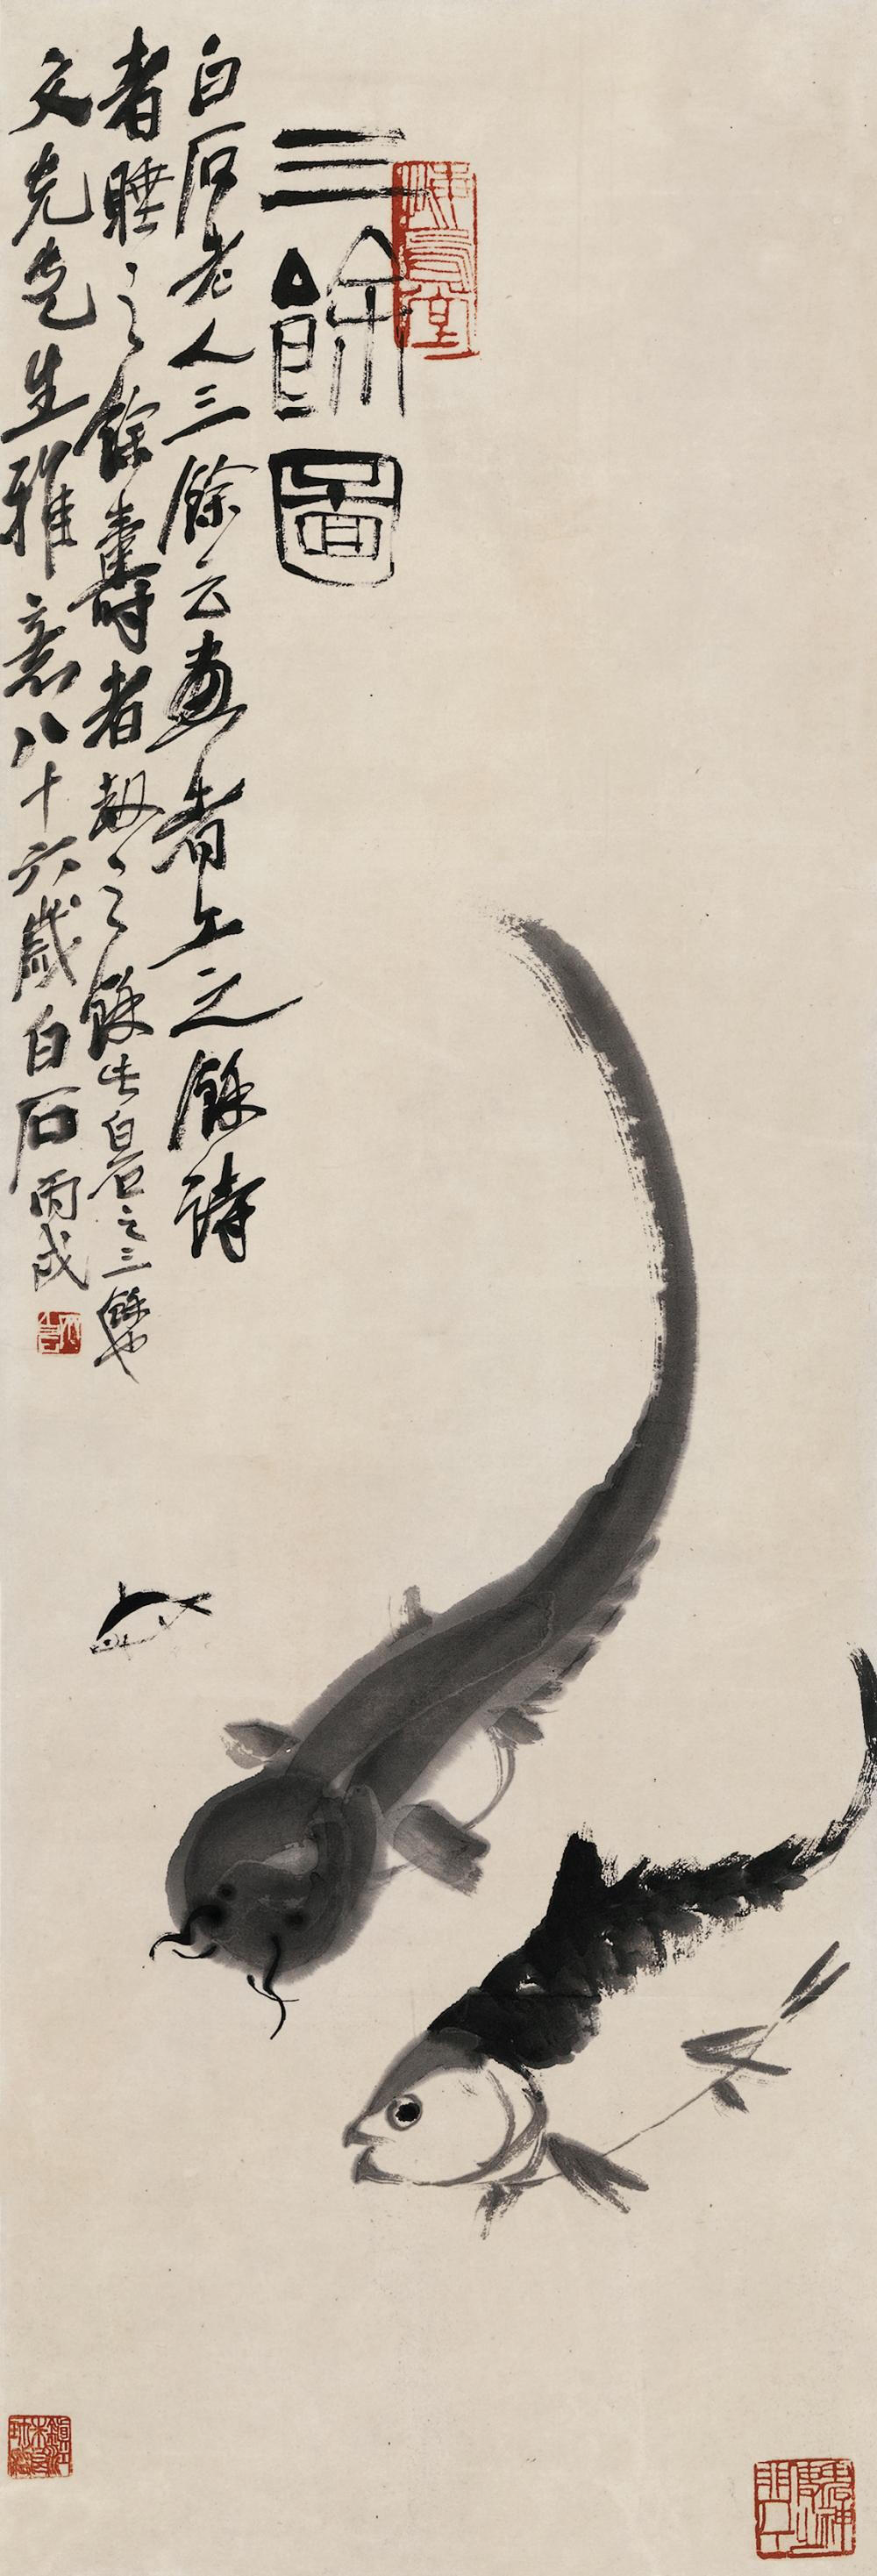 三餘圖
白石老人三餘云畫者工之餘詩
者睡之餘壽者劫之餘此白石之三餘也
文光先生雅意八十六歲白石丙戌